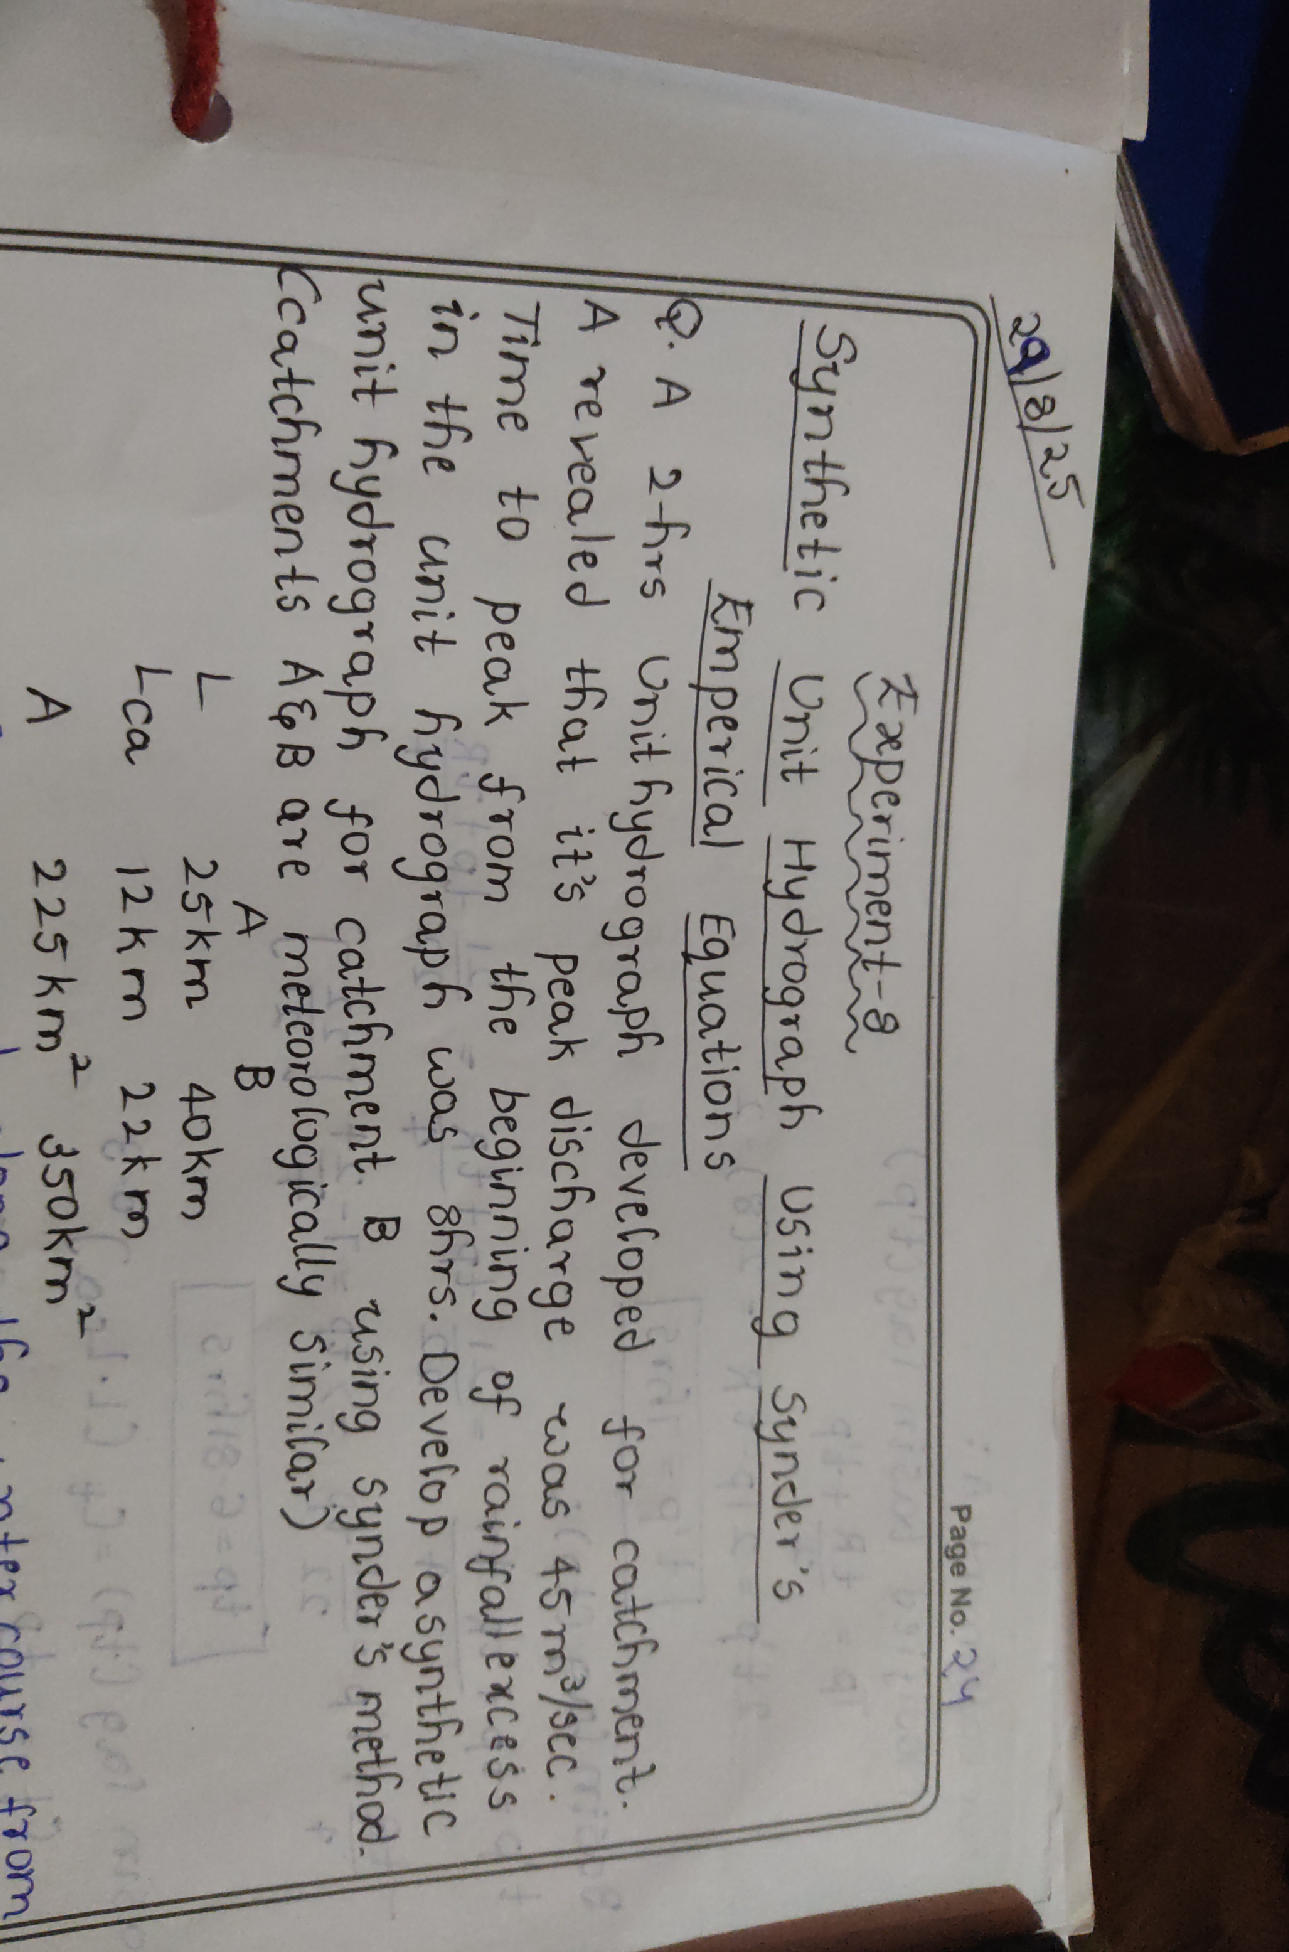 29/8/25
Page No. 24
Experiment-8
Synthetic Unit Hydrograph using Synder's
Emperical Equations
Q. A 2-hrs Unit hydrograph developed for catchment.
A revealed that it's peak discharge was 45m³/sec.
Time to peak from the beginning of rainfall excess
in the unit hydrograph was 8hrs. Develop a synthetic
unit hydrograph for catchment B using synder's method.
(catchments A & B are meteorologically similar)
A B
L 25km 40km
Lca 12km 22km
A 225km² 350km²
course from